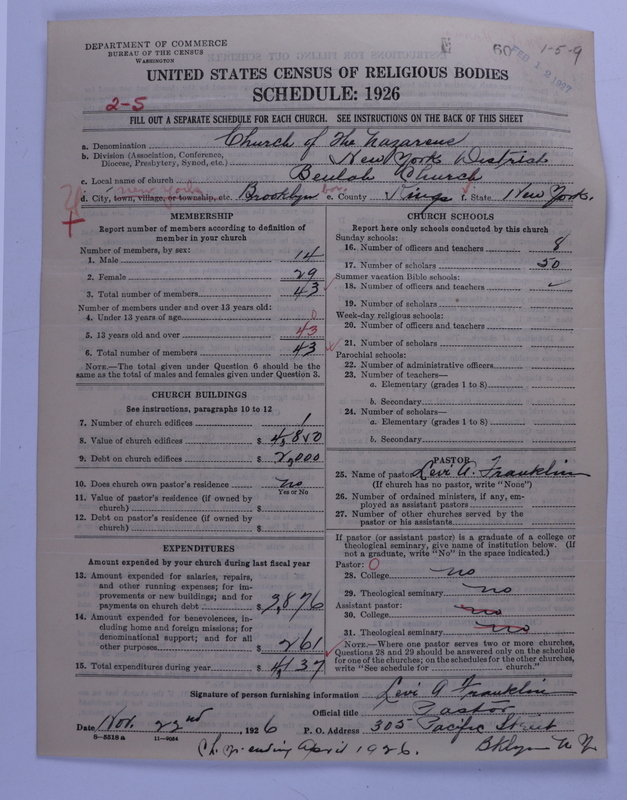 DEPARTMENT OF COMMERCE
BUREAU OF THE CENSUS
WASHINGTON
60
FEB 12 1927
1-5-9
UNITED STATES CENSUS OF RELIGIOUS BODIES
SCHEDULE: 1926
2-5
FILL OUT A SEPARATE SCHEDULE FOR EACH CHURCH. SEE INSTRUCTIONS ON THE BACK OF THIS SHEET
a. Denomination Church of the Nazarene
b. Division (Association, Conference, Diocese, Presbytery, Synod, etc.) New York District
c. Local name of church Beulah Church
new york
d. City, town, village, or township, etc. Brooklyn bor. e. County Kings f. State New York.
MEMBERSHIP
Report number of members according to definition of member in your church
Number of members, by sex:
1. Male 14
2. Female 29
3. Total number of members 43
Number of members under and over 13 years old:
4. Under 13 years of age 0
5. 13 years old and over 43
6. Total number of members 43
NOTE.—The total given under Question 6 should be the
same as the total of males and females given under Question 3.
CHURCH BUILDINGS
See instructions, paragraphs 10 to 12
7. Number of church edifices 1
8. Value of church edifices $
9. Debt on church edifices $ 2,000
10. Does church own pastor's residence? no
Yes or No
11. Value of pastor's residence (if owned by
church) $
12. Debt on pastor's residence (if owned by
church) $
EXPENDITURES
Amount expended by your church during last fiscal year
13. Amount expended for salaries, repairs,
and other running expenses; for im-
provements or new buildings; and for
payments on church debt $ 3,876
14. Amount expended for benevolences, in-
cluding home and foreign missions; for
denominational support; and for all
other purposes $ 261
15. Total expenditures during year $ 4,137
CHURCH SCHOOLS
Report here only schools conducted by this church
Sunday schools:
16. Number of officers and teachers 8
17. Number of scholars 50
Summer vacation Bible schools:
18. Number of officers and teachers
19. Number of scholars
Week-day religious schools:
20. Number of officers and teachers
21. Number of scholars
Parochial schools:
22. Number of administrative officers
23. Number of teachers—
a. Elementary (grades 1 to 8)
b. Secondary
24. Number of scholars—
a. Elementary (grades 1 to 8)
b. Secondary
PASTOR
25. Name of pastor Levi A. Franklin
(If church has no pastor, write "None")
26. Number of ordained ministers, if any, em-
ployed as assistant pastors
27. Number of other churches served by the
pastor or his assistants
If pastor (or assistant pastor) is a graduate of a college or
theological seminary, give name of institution below. (If
not a graduate, write "No" in the space indicated.)
Pastor: 0
28. College no
29. Theological seminary no
Assistant pastor:
30. College no
31. Theological seminary no
NOTE.—Where one pastor serves two or more churches,
Questions 28 and 29 should be answered only on the schedule
for one of the churches; on the schedules for the other churches,
write "See schedule for church."
Signature of person furnishing information Levi A Franklin
Official title Pastor
Date Nov. 22nd, 1926 P. O. Address 305 Pacific Street
S-5518a 11-9084
Ch. yr. ending April 1926. BKlyn N Y